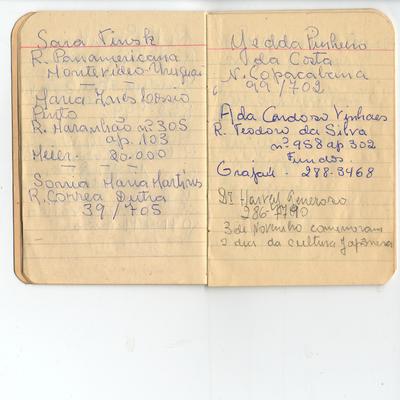 Sara Tinsk
R. Panamericana
Montevideo-Uruguai
Maria Ines
Pinto
R. Maranhão nº 305
ap. 103
Meier. 20.000
Sonia Maria Martins
R. Correa Dutra
39/705
Yedda Pinheiro
da Costa
N. Copacabana
99/702
Ada Cardoso Vinhaes
R. Teodoro da Silva
nº 958 ap 302
Fundos.
Grajaú. 288-3468
Dr Generoso
286-7790
3 de Novembro comemoram
o dia da cultura Japonesa